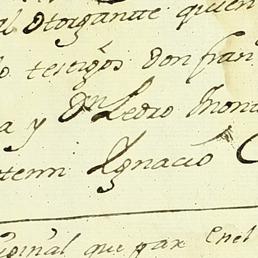 al otorgante quien
testigos Don Fran
a y Dn Pedro Mon
Ygnacio C
que pax enel